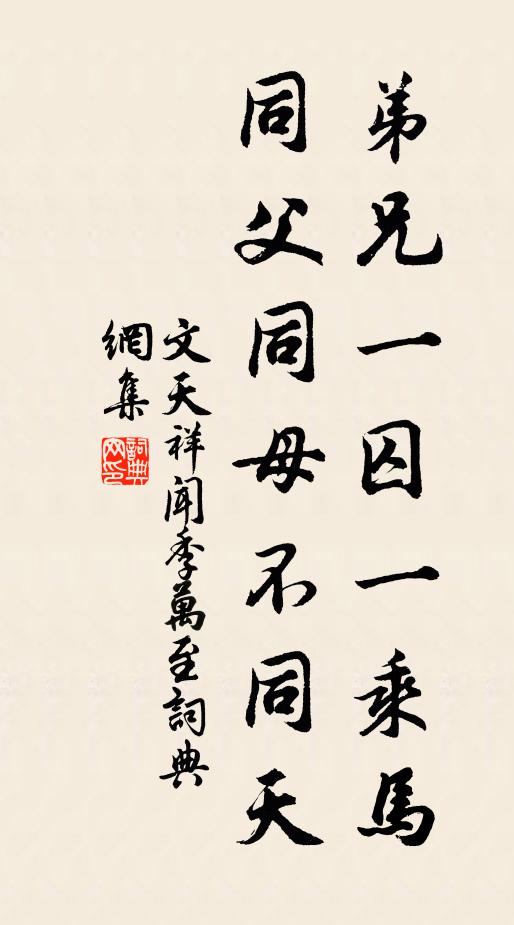 弟兄一囚一乘馬
同父同母不同天
文天祥聞季萬至詞典
網集
詞典
网印